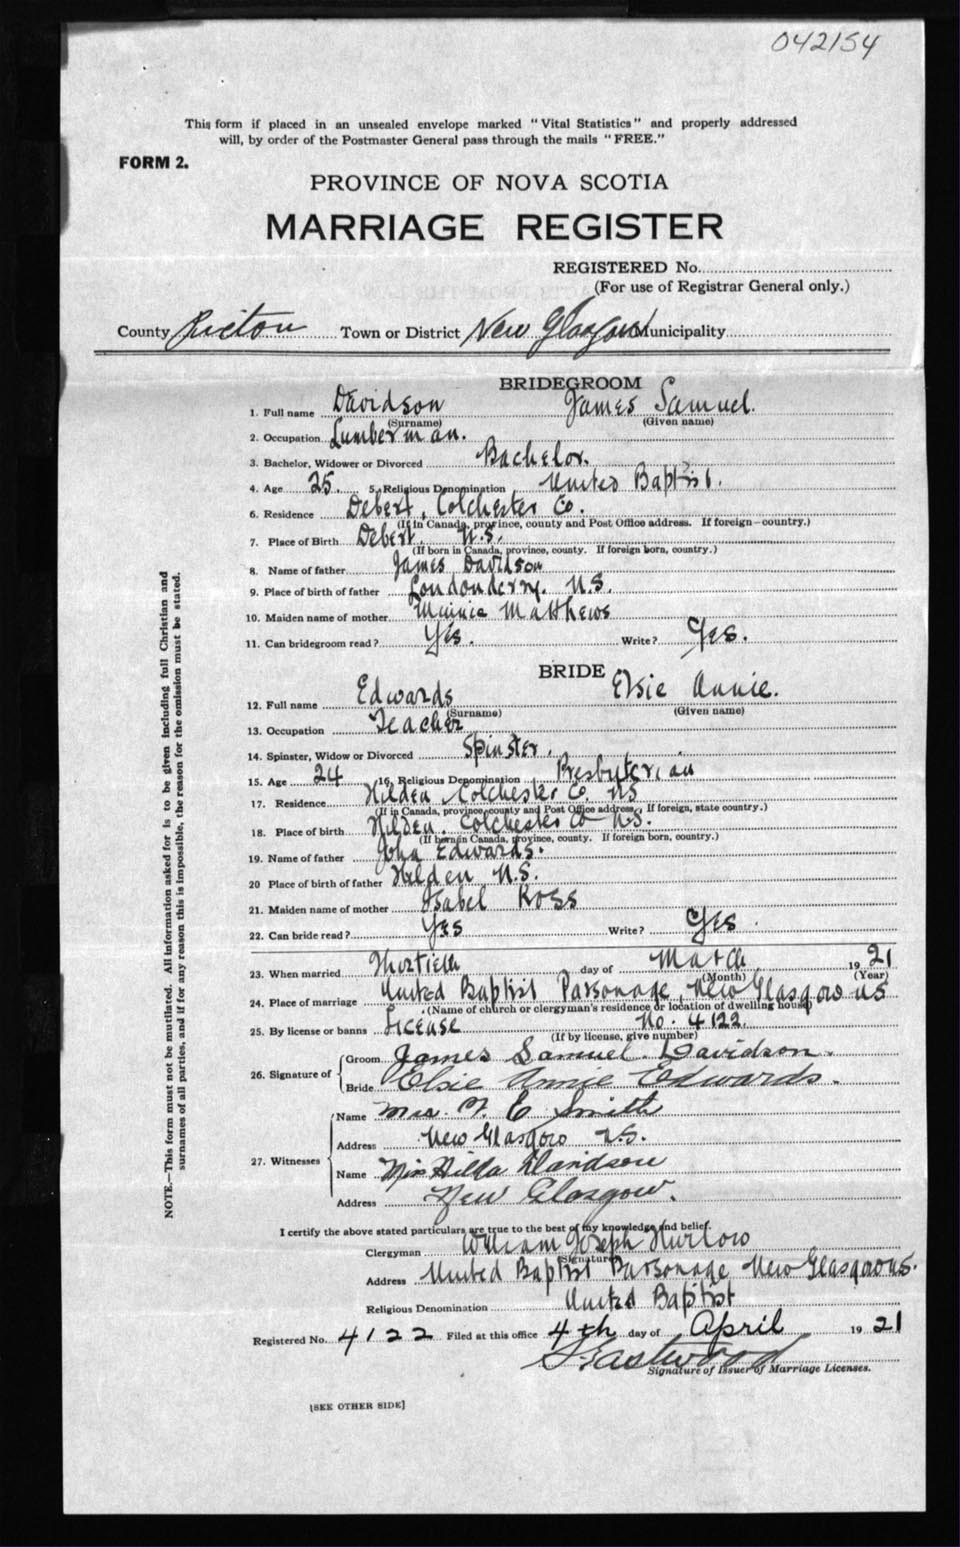 042154
This form if placed in an unsealed envelope marked "Vital Statistics" and properly addressed
will, by order of the Postmaster General pass through the mails "FREE."
FORM 2.
PROVINCE OF NOVA SCOTIA
MARRIAGE REGISTER
REGISTERED No.
(For use of Registrar General only.)
County Pictou Town or District New Glasgow Municipality
BRIDEGROOM
1. Full name Davidson James Samuel.
(Surname) (Given name)
2. Occupation Lumberman.
3. Bachelor, Widower or Divorced Bachelor.
4. Age 25. 5. Religious Denomination United Baptist.
6. Residence Debert, Colchester Co.
(If in Canada, province, county and Post Office address. If foreign—country.)
7. Place of Birth Debert. N.S.
(If born in Canada, province, county. If foreign born, country.)
8. Name of father James Davidson
9. Place of birth of father Londonderry. N.S.
10. Maiden name of mother Minnie Matthews
11. Can bridegroom read? Yes. Write? Yes.
BRIDE
12. Full name Edwards Elsie Annie.
(Surname) (Given name)
13. Occupation Teacher
14. Spinster, Widow or Divorced Spinster.
15. Age 24 16. Religious Denomination Presbyterian
17. Residence Hilden Colchester Co NS
(If in Canada, province, county and Post Office address, If foreign, state country.)
18. Place of birth Hilden. Colchester Co N.S.
(If born in Canada, province, county. If foreign born, country.)
19. Name of father John Edwards.
20 Place of birth of father Hilden N.S.
21. Maiden name of mother Isabel Ross
22. Can bride read? Yes Write? Yes.
23. When married Thirtieth day of March 1921
(Month) (Year)
24. Place of marriage United Baptist Parsonage, New Glasgow NS
(Name of church or clergyman's residence or location of dwelling house)
25. By license or banns License No. 4122.
(If by license, give number)
26. Signature of Groom James Samuel Davidson.
Bride Elsie Annie Edwards.
27. Witnesses Name Mrs. F E Smith
Address New Glasgow N.S.
Name Miss Hilda Davidson
Address New Glasgow.
I certify the above stated particulars are true to the best of my knowledge and belief.
Clergyman William Joseph Hurlow
(Signature)
Address United Baptist Parsonage New Glasgow NS.
Religious Denomination United Baptist
Registered No. 4122 Filed at this office 4th day of April 1921
Eastwood
Signature of Issuer of Marriage Licenses.
[SEE OTHER SIDE]
NOTE.—This form must not be mutilated. All information asked for is to be given including full Christian and
surnames of all parties, and if for any reason this is impossible, the reason for the omission must be stated.